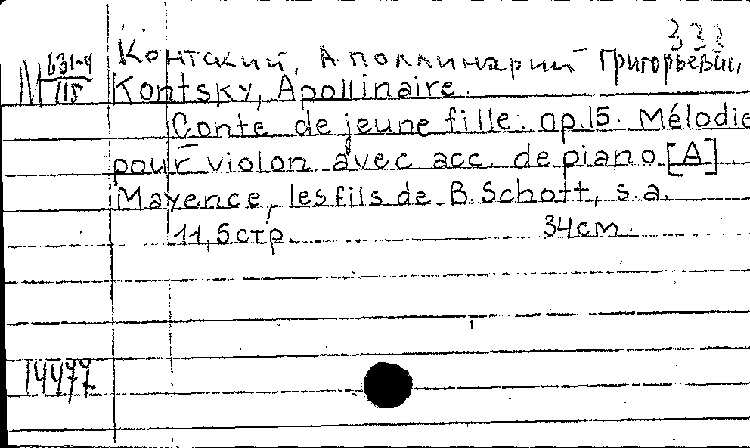 333
М 631-4/115
Контский, Аполлинарий Григорьевич,
Kontsky, Apollinaire.
Conte de jeune fille. op.15. Mélodie
pour violon avec acc. de piano. [A]
Mayence, les fils de B. Schott, s.a.
11,5 стр. 34 см.
14477